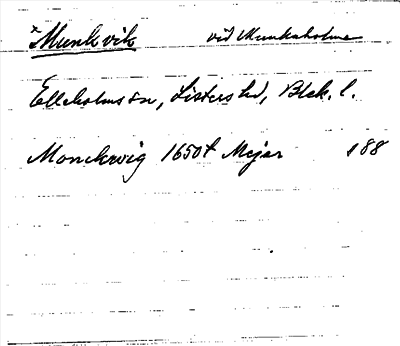 *Munkvik vid Munkaholme
Elleholms sn, Listers hd, Blek. l.
Monckwig 1650t Mejer 188